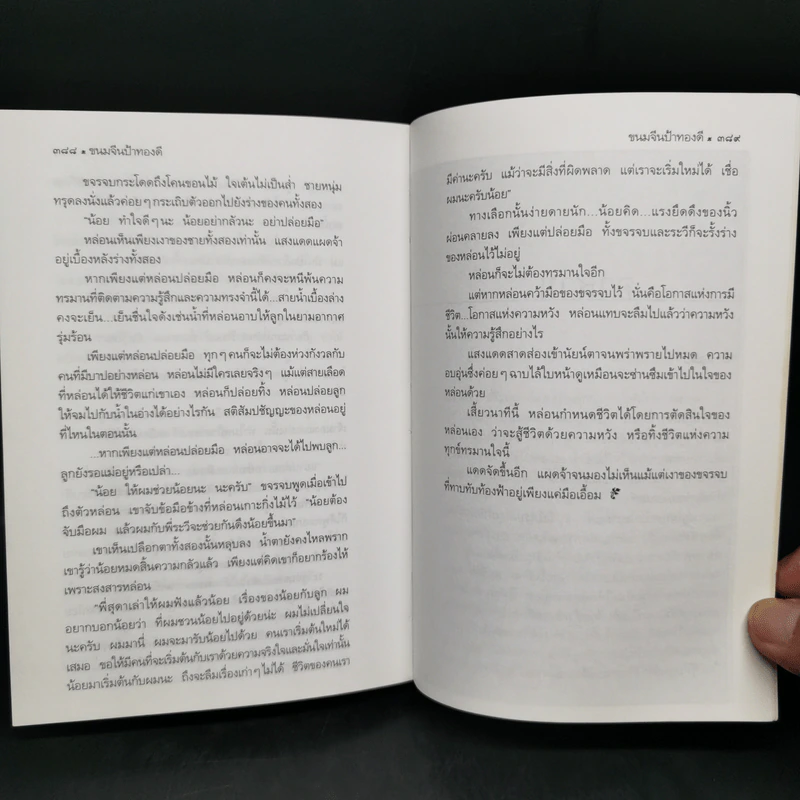 ๓๘๘ ● ขนมจีนป้าทองดี
ขจรจบกระโดดถึงโคนขอนไม้ ใจเต้นไม่เป็นส่ำ ชายหนุ่ม
ทรุดลงนั่งแล้วค่อยๆ กระเถิบตัวออกไปยังร่างของคนทั้งสอง
“น้อย ทำใจดีๆ นะ น้อยอย่ากลัวนะ อย่าปล่อยมือ”
หล่อนเห็นเพียงเงาของชายทั้งสองเท่านั้น แสงแดดแผดจ้า
อยู่เบื้องหลังร่างทั้งสอง
หากเพียงแต่หล่อนปล่อยมือ หล่อนก็คงจะหนีพ้นความ
ทรมานที่ติดตามความรู้สึกและความทรงจำนี้ได้...สายน้ำเบื้องล่าง
คงจะเย็น...เย็นชื่นใจดังเช่นน้ำที่หล่อนอาบให้ลูกในยามอากาศ
รุ่มร้อน
เพียงแต่หล่อนปล่อยมือ ทุกๆ คนก็จะไม่ต้องห่วงกังวลกับ
คนที่มีบาปอย่างหล่อน หล่อนไม่มีใครเลยจริงๆ แม้แต่สายเลือด
ที่หล่อนได้ให้ชีวิตแก่เขาเอง หล่อนก็ปล่อยทิ้ง หล่อนปล่อยลูก
ให้จมไปกับน้ำในอ่างได้อย่างไรกัน สติสัมปชัญญะของหล่อนอยู่
ที่ไหนในตอนนั้น
...หากเพียงแต่หล่อนปล่อยมือ หล่อนอาจจะได้ไปพบลูก...
ลูกยังรอแม่อยู่หรือเปล่า...
“น้อย ให้ผมช่วยน้อยนะ นะครับ” ขจรจบพูดเมื่อเข้าไป
ถึงตัวหล่อน เขาจับข้อมือข้างที่หล่อนเกาะกิ่งไม้ไว้ “น้อยต้อง
จับมือผม แล้วผมกับพี่ระวีจะช่วยกันดึงน้อยขึ้นมา”
เขาเห็นเปลือกตาทั้งสองนั้นหลุบลง น้ำตายังคงไหลพราก
เขารู้ว่าน้อยหมดสิ้นความกลัวแล้ว เพียงแต่คิดเขาก็อยากร้องไห้
เพราะสงสารหล่อน
“พี่สุดาเล่าให้ผมฟังแล้วน้อย เรื่องของน้อยกับลูก ผม
อยากบอกน้อยว่า ที่ผมชวนน้อยไปอยู่ด้วยน่ะ ผมไม่เปลี่ยนใจ
นะครับ ผมมานี่ ผมจะมารับน้อยไปด้วย คนเราเริ่มต้นใหม่ได้
เสมอ ขอให้มีคนที่จะเริ่มต้นกับเราด้วยความจริงใจและมั่นใจเท่านั้น
น้อยมาเริ่มต้นกับผมนะ ถึงจะลืมเรื่องเก่าๆ ไม่ได้ ชีวิตของคนเรา
ขนมจีนป้าทองดี ● ๓๘๙
มีค่านะครับ แม้ว่าจะมีสิ่งที่ผิดพลาด แต่เราจะเริ่มใหม่ได้ เชื่อ
ผมนะครับน้อย”
ทางเลือกนั้นง่ายดายนัก...น้อยคิด...แรงยึดดึงของนิ้ว
ผ่อนคลายลง เพียงแต่ปล่อยมือ ทั้งขจรจบและระวีก็จะรั้งร่าง
ของหล่อนไว้ไม่อยู่
หล่อนก็จะไม่ต้องทรมานใจอีก
แต่หากหล่อนคว้ามือของขจรจบไว้ นั่นคือโอกาสแห่งการมี
ชีวิต...โอกาสแห่งความหวัง หล่อนแทบจะลืมไปแล้วว่าความหวัง
นั้นให้ความรู้สึกอย่างไร
แสงแดดสาดส่องเข้านัยน์ตาจนพร่าพรายไปหมด ความ
อบอุ่นซึ่งค่อยๆ ฉาบไล้ใบหน้าดูเหมือนจะซ่านซึมเข้าไปในใจของ
หล่อนด้วย
เสี้ยวนาทีนี้ หล่อนกำหนดชีวิตได้โดยการตัดสินใจของ
หล่อนเอง ว่าจะสู้ชีวิตด้วยความหวัง หรือทิ้งชีวิตแห่งความ
ทุกข์ทรมานใจนี้
แดดจัดขึ้นอีก แผดจ้าจนมองไม่เห็นแม้แต่เงาของขจรจบ
ที่ทาบทับท้องฟ้าอยู่เพียงแค่มือเอื้อม